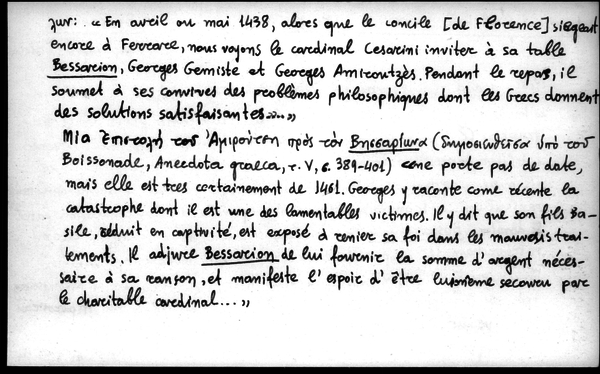 γων: "En avril ou mai 1438, alors que le concile [de Florence] siegeait
encore à Ferrare, nous voyons le cardinal Cesarini inviter à sa table
Bessarion, Georges Gemiste et Georges Amiroutzès. Pendant le repas, il
soumet à ses convives des problèmes philosophiques dont les Grecs donnent
des solutions satisfaisantes..."
Μία ἐπιστολή τοῦ Ἀμιρούτση πρός τόν Βησσαρίωνα (δημοσιευθεῖσα ὑπό τοῦ
Boissonade, Anecdota graeca, τ. V, σ. 389-401) «ne porte pas de date,
mais elle est tres certainement de 1461. Georges y raconte come récente la
catastrophe dont il est une des lamentables victimes. Il y dit que son fils Ba-
sile, réduit en captivité, est exposé à renier sa foi dans les mauvais trai-
tements. Il adjure Bessarion de lui fournir la somme d'argent néces-
saire à sa rançon, et manifeste l'espoir d'être luimême secouru par
le charitable cardinal...»